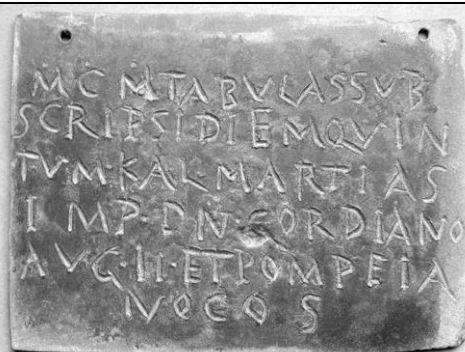 M C M TABVLAS SVB
SCRIPSI DIEM QVIN
TVM·KAL·MARTIAS
IMP·D N·GORDIANO
AVG·II·ET POMPEIA
NO COS